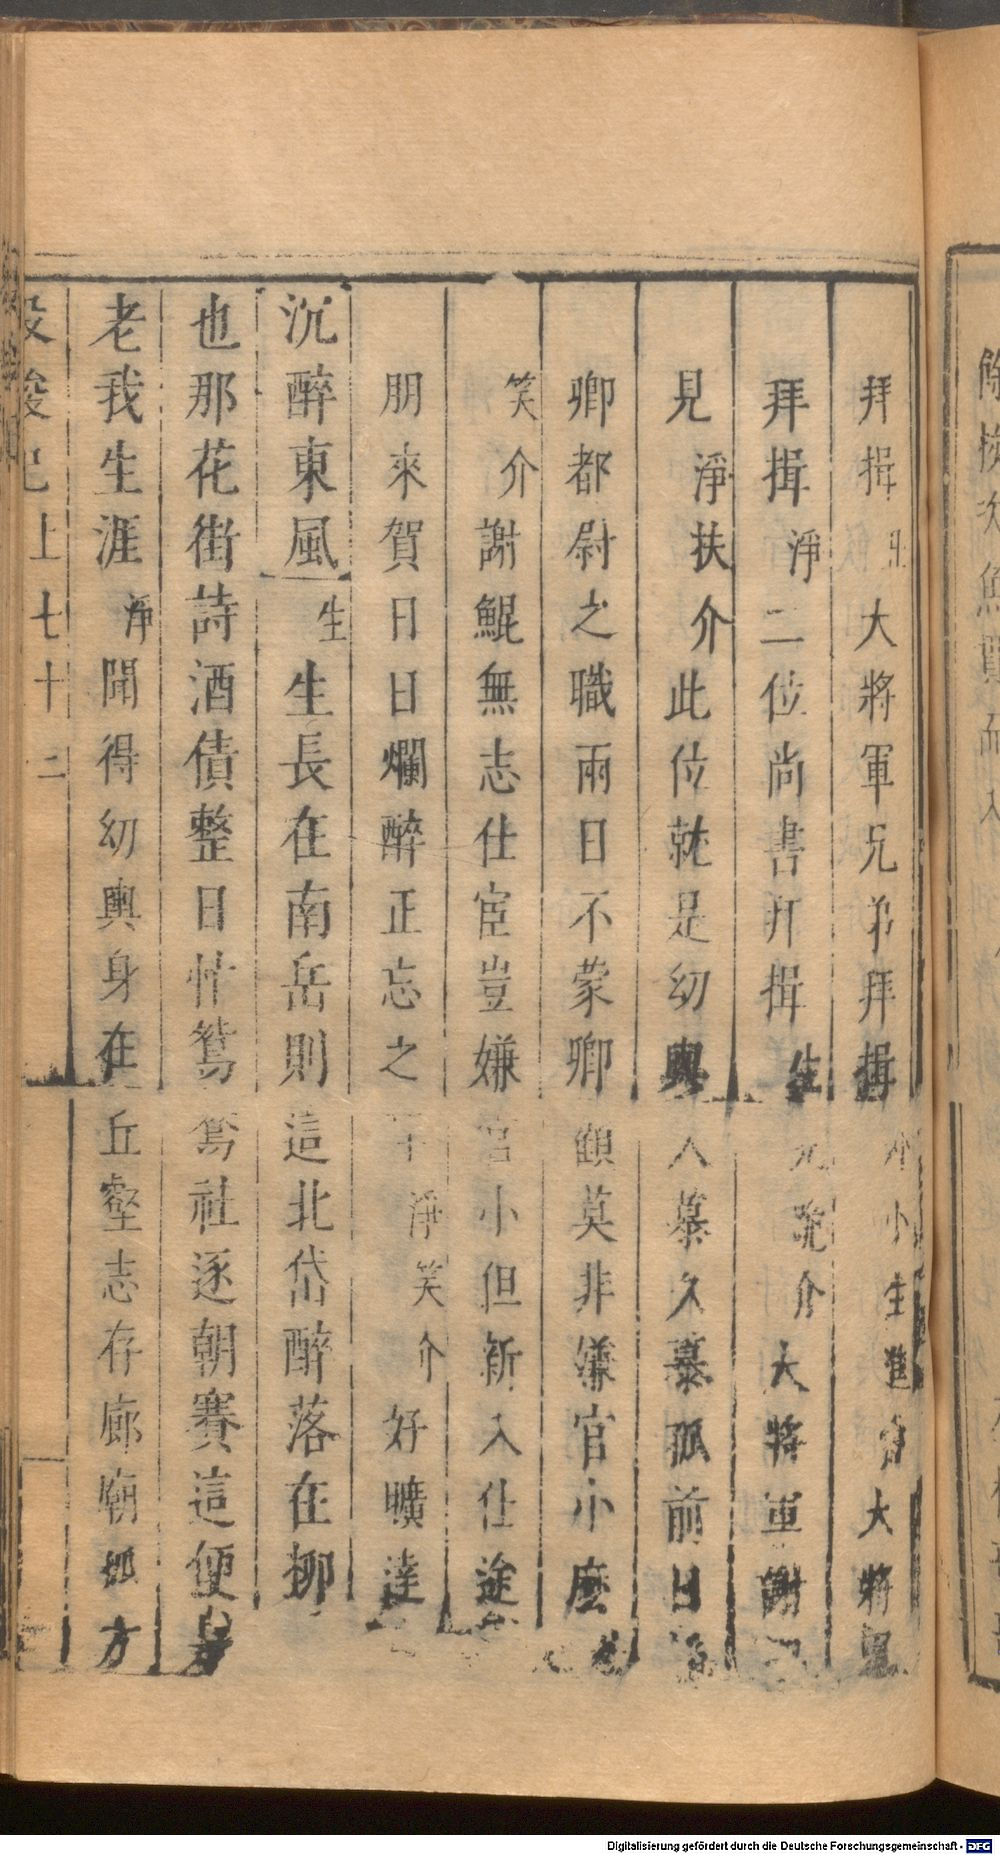 拜揖 大將軍兄弟拜揖 小生進 大將軍
拜揖淨二位尚書拜揖生 介大將軍謝
見淨扶介此位就是幼輿久慕久慕孤前日
卿都尉之職兩日不蒙卿顧莫非嫌官小麼
笑介謝鯤無志仕宦豈嫌官小但新入仕途
朋來賀日日爛醉正忘之 淨笑介好曠達
沉醉東風生生長在南岳則這北岱醉落在柳
也那花街詩酒債整日忙鴛鴦社逐朝賽這便
老我生涯淨聞得幼輿身在丘壑志存廊廟孤方
投梭记上七十二
Digitalisierung gefördert durch die Deutsche Forschungsgemeinschaft - DFG